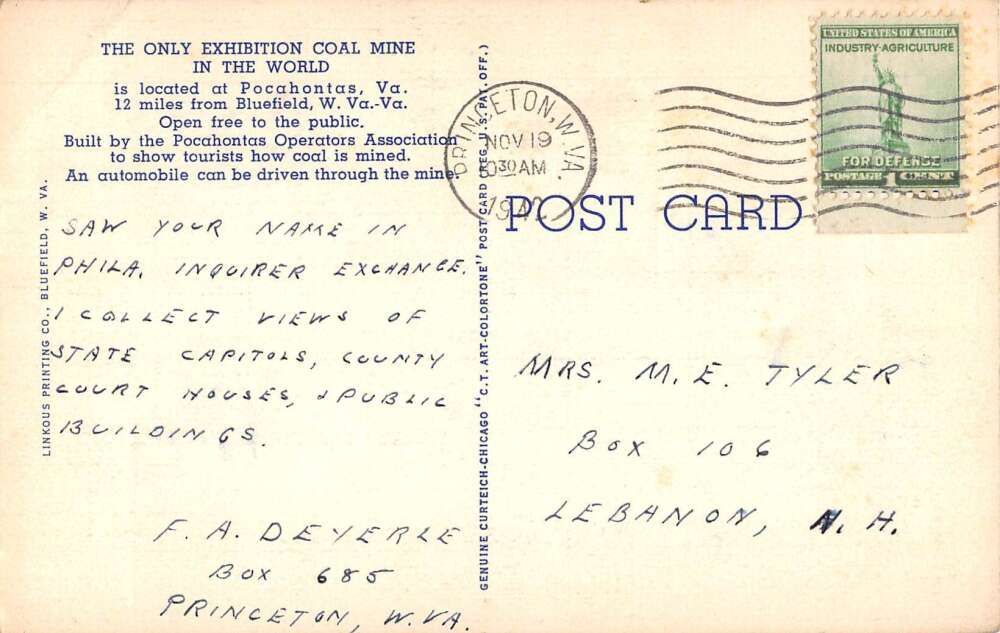 THE ONLY EXHIBITION COAL MINE
IN THE WORLD
is located at Pocahontas, Va.
12 miles from Bluefield, W. Va.-Va.
Open free to the public.
Built by the Pocahontas Operators Association
to show tourists how coal is mined.
An automobile can be driven through the mine.
SAW YOUR NAME IN
PHILA. INQUIRER EXCHANGE.
I COLLECT VIEWS OF
STATE CAPITOLS, COUNTY
COURT HOUSES, & PUBLIC
BUILDINGS.
F. A. DEYERLE
BOX 685
PRINCETON, W. VA.
LINKOUS PRINTING CO., BLUEFIELD, W. VA.
GENUINE CURTEICH-CHICAGO "C.T. ART-COLORTONE" POST CARD (REG. U.S. PAT. OFF.)
PRINCETON, W. VA.
NOV 19
30 AM
194
POST CARD
UNITED STATES OF AMERICA
INDUSTRY·AGRICULTURE
FOR DEFENSE
POSTAGE 1 CENT
MRS. M. E. TYLER
BOX 106
LEBANON, N. H.